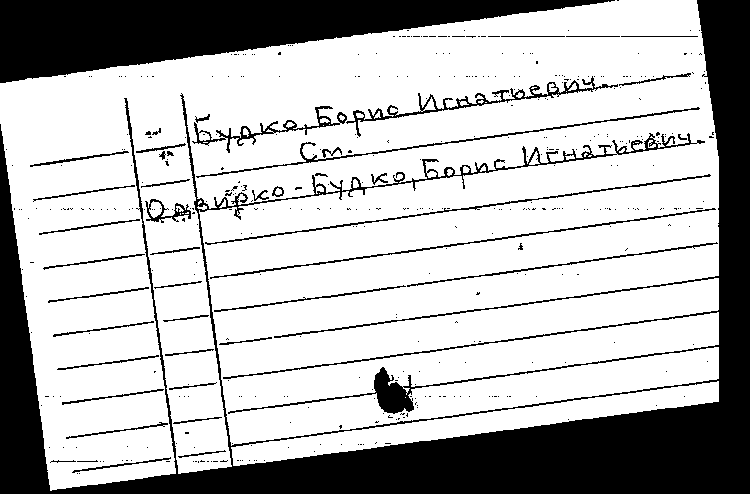 Будко, Борис Игнатьевич.
См.
Одвирко-Будко, Борис Игнатьевич.